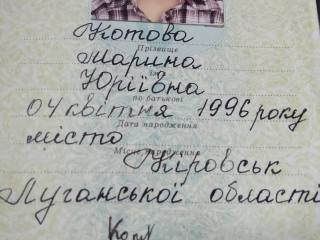 Котова
Прізвище
Марина
Ім'я
Юріївна
по батькові
04 квітня 1996 року
Дата народження
місто
Місце народження
Кіровськ
Луганської області